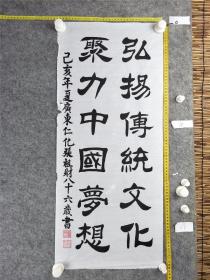 弘揚傳統文化
聚力中國夢想
己亥年夏廣東仁化張教財八十六歲書